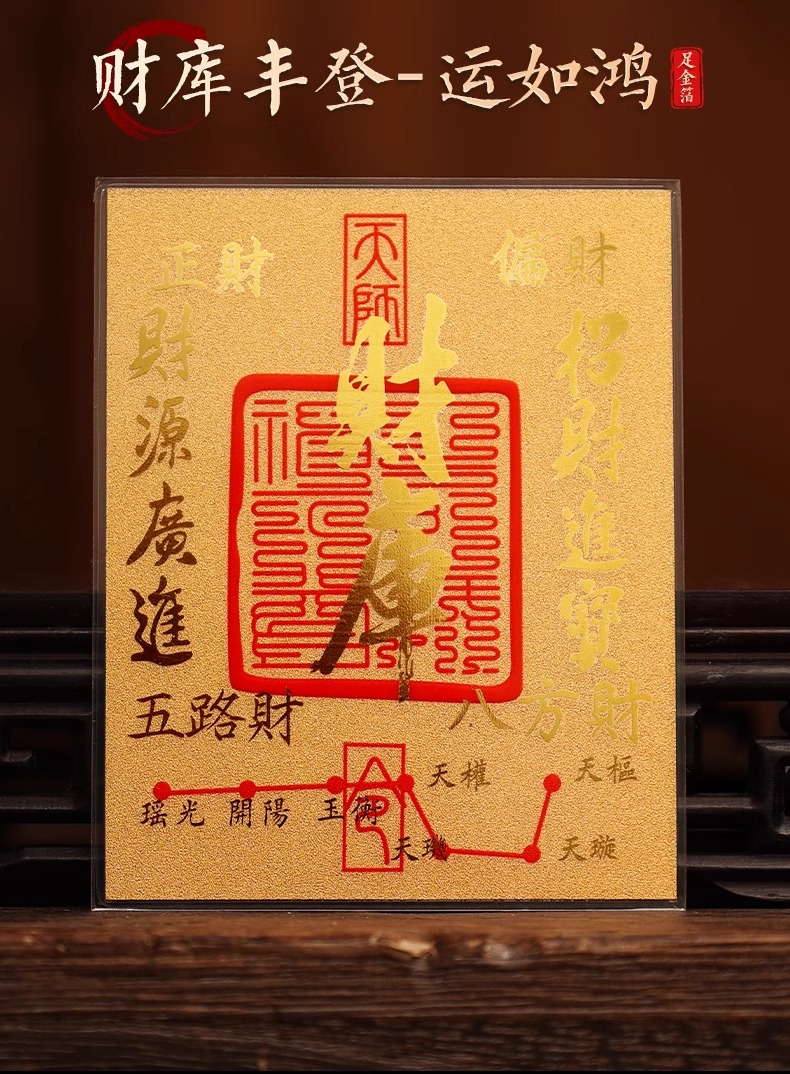 财库丰登-运如鸿
足金箔
天師
正財
偏財
財源廣進
財庫
招財進寶
五路財
八方財
天權
天樞
瑤光
開陽
玉衡
天璣
天璇
令